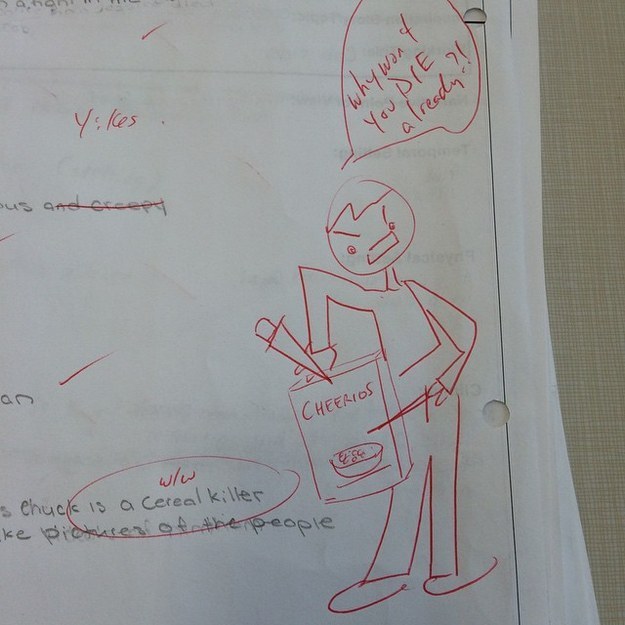 why won't
you DIE
already?!
Yikes.
ous and creepy
an
CHEERIOS
w/w
s Chuck is a cereal killer
ke pictures of the people